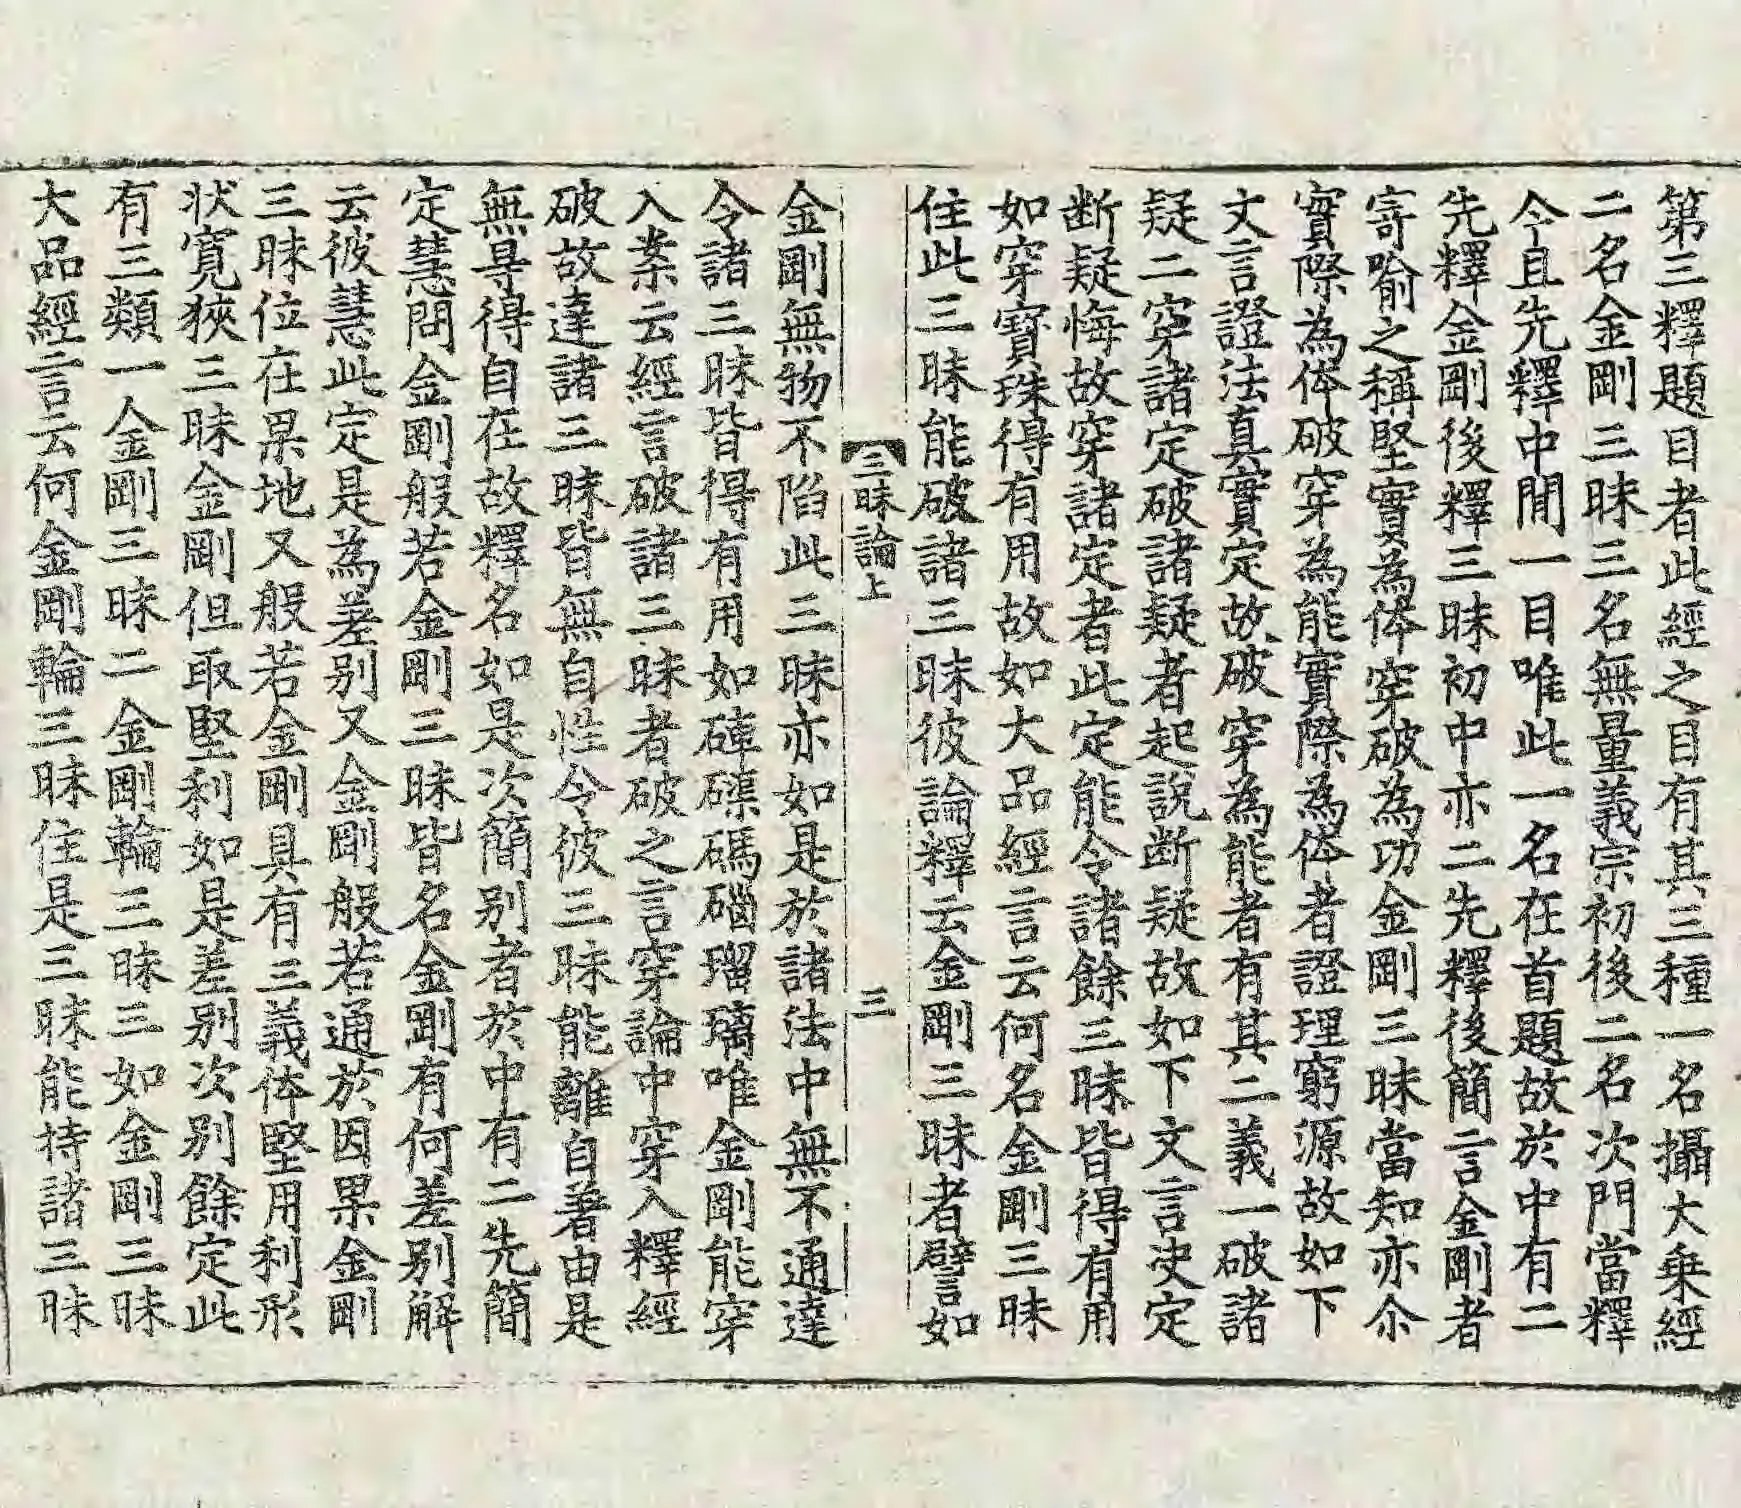 第三釋題目者此經之目有其三種一名攝大乗經
二名金剛三昧三名無量義宗初後二名次門當釋
今且先釋中間一目唯此一名在首題故於中有二
先釋金剛後釋三昧初中亦二先釋後簡言金剛者
寄喻之稱堅實為体穿破為功金剛三昧當知亦尒
實際為体破穿為能實際為体者證理窮源故如下
文言證法真實定故破穿為能者有其二義一破諸
疑二穿諸定破諸疑者起說断疑故如下文言决定
断疑悔故穿諸定者此定能令諸餘三昧皆得有用
如穿寶珠得有用故如大品經言云何名金剛三昧
住此三昧能破諸三昧彼論釋云金剛三昧者譬如
三昧論上 三
金剛無物不陷此三昧亦如是於諸法中無不通達
令諸三昧皆得有用如硨磲碼碯瑠璃唯金剛能穿
入案云經言破諸三昧者破之言穿論中穿入釋經
破故達諸三昧皆無自性令彼三昧能離自著由是
無㝵得自在故釋名如是次簡別者於中有二先簡
定慧問金剛般若金剛三昧皆名金剛有何差别解
云彼慧此定是為差别又金剛般若通於因果金剛
三昧位在果地又般若金剛具有三義体堅用利形
状寛狹三昧金剛但取堅利如是差别次别餘定此
有三類一金剛三昧二金剛輪三昧三如金剛三昧
大品經言云何金剛輪三昧住是三昧能持諸三昧